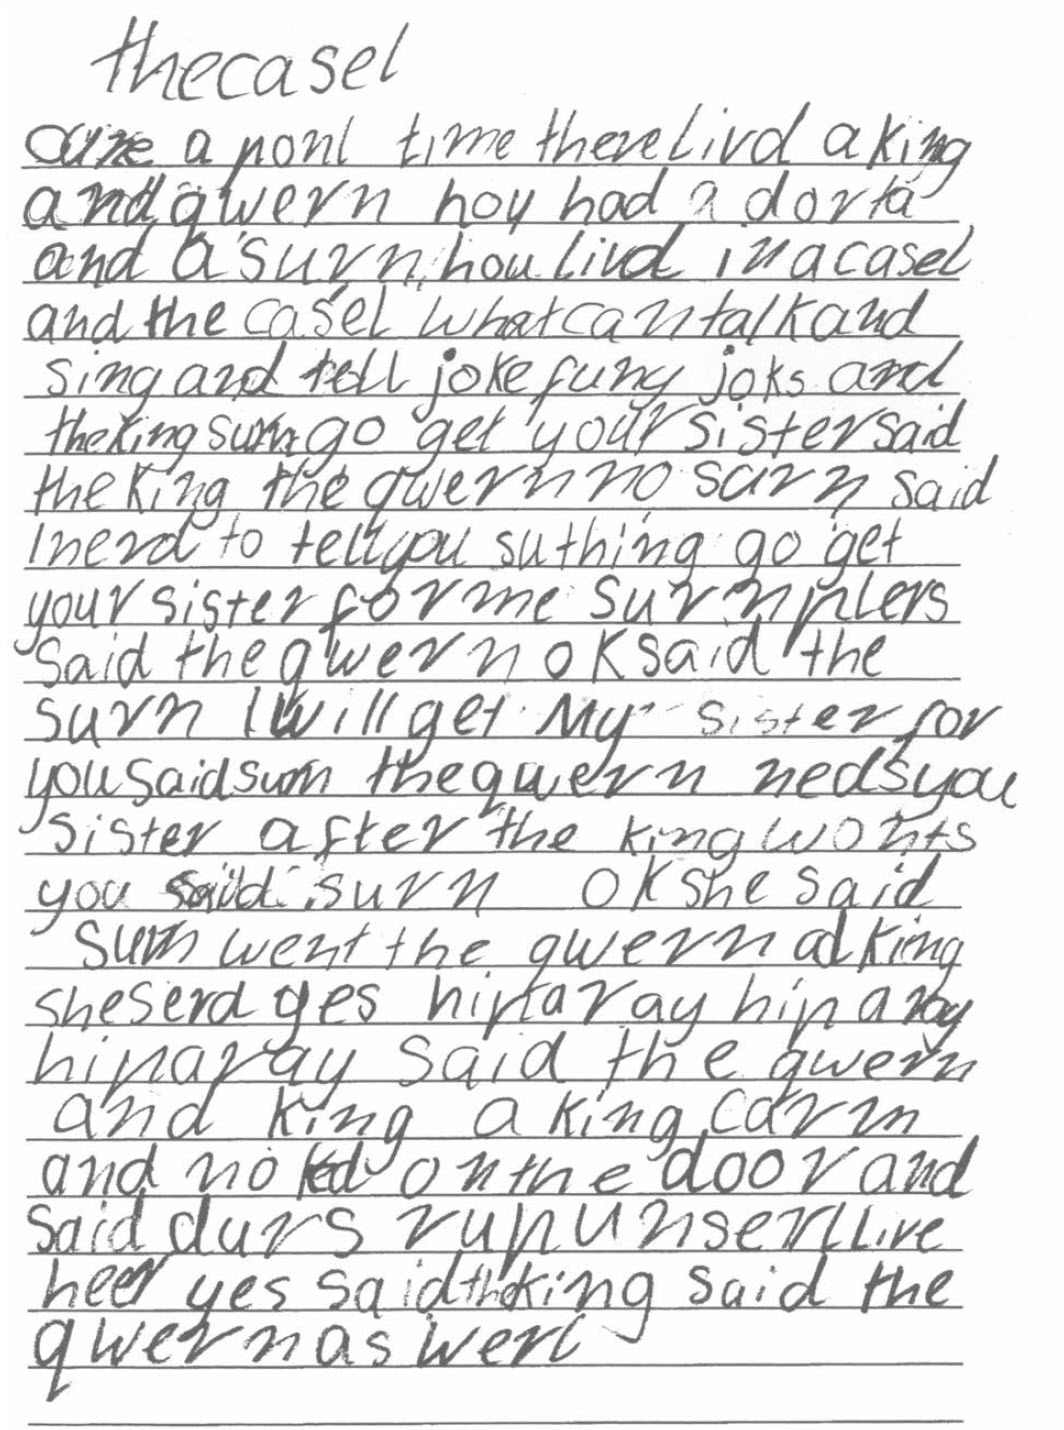 thecasel
a ponl time there livd a king
and qwern hoy had a dorta
and a surn hou livd in a casel
and the casel what can talk and
sing and tell joke funy joks and
the king surn go get your sister said
the king the qwern no surn said
I nerd to tell you suthing go get
your sister for me surn plers
said the qwern ok said the
surn I will get My sister for
you said surn the qwern neds you
sister after the king wonts
you said surn ok she said
surn went the qwern ad king
she serd yes hiparay hiparay
hiparay said the qwern
and king a king carm
and noked on the door and
said durs rupunserl live
heer yes said the king said the
qwern as werl